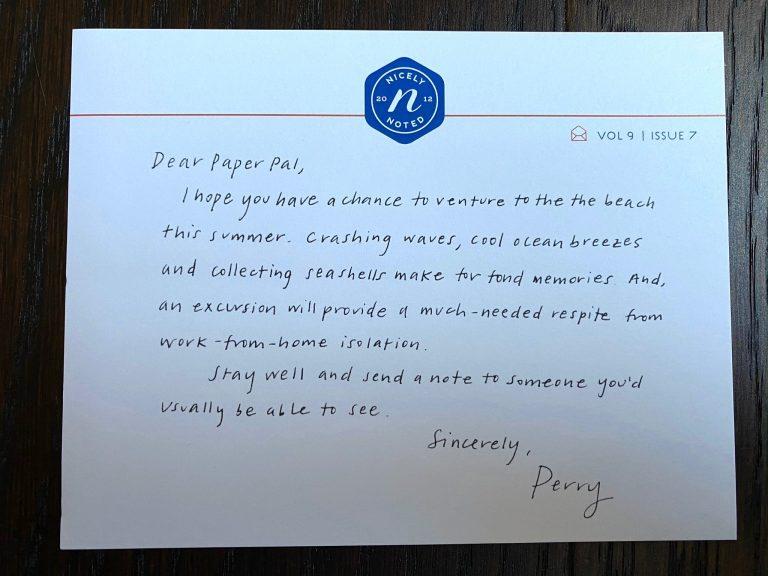 NICELY
20 n 12
NOTED
VOL 9 | ISSUE 7
Dear Paper Pal,
I hope you have a chance to venture to the the beach
this summer. Crashing waves, cool ocean breezes
and collecting seashells make for fond memories. And,
an excursion will provide a much-needed respite from
work-from-home isolation.
Stay well and send a note to someone you'd
usually be able to see.
Sincerely,
Perry